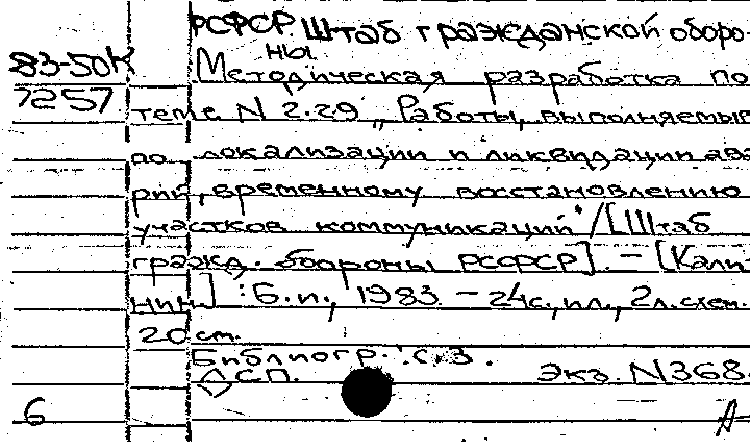 РСФСР Штаб гражданской оборо-
ны
83-50К Методическая разработка по
7257 теме N 2.29 „Работы, выполняемые
по локализации и ликвидации ава-
рий, временному восстановлению
участков коммуникаций" /[Штаб
гражд. обороны РСФСР]. – [Кали-
нин] : Б.и., 1983. – 24с., ил., 2л. схем.
20 см.
Библиогр.: с. 3.
ДСП. Экз. N368
6 А